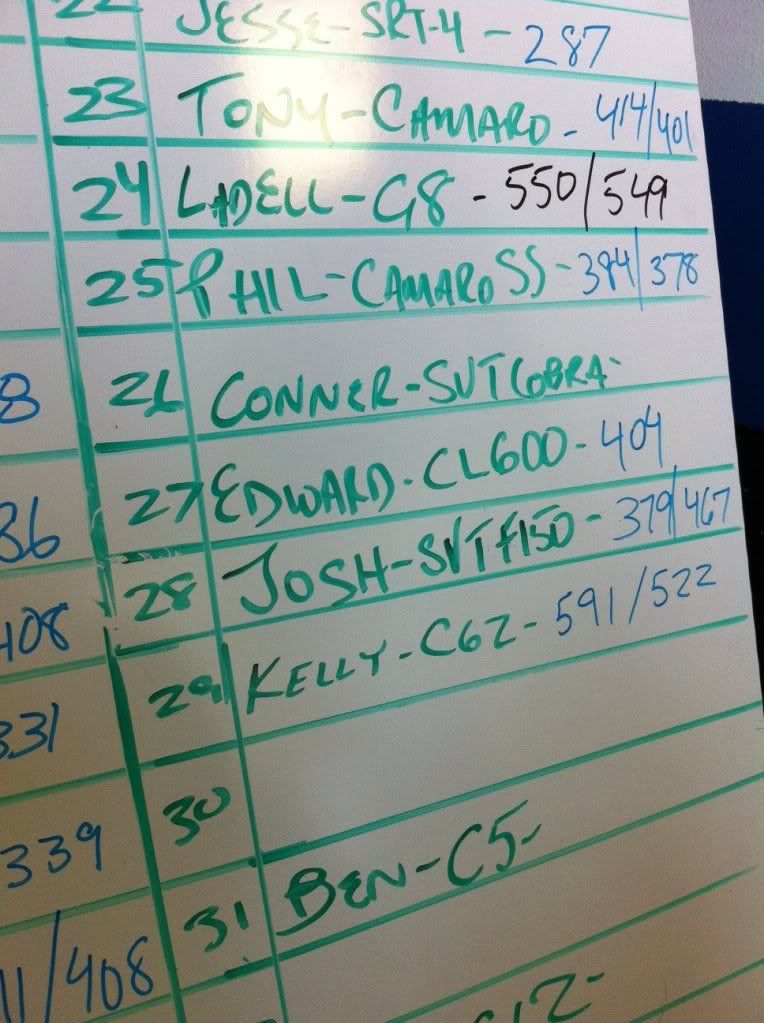 22 JESSE-SRT-4 - 287
23 TONY-CAMARO - 414/401
24 LADELL-G8 - 550/549
25 PHIL-CAMARO SS - 384/378
8
26 CONNER-SVT COBRA-
36
27 EDWARD-CL600-404
408
28 JOSH-SVT F150 - 379/467
331
29 KELLY-C6Z-591/522
339
30
11/408
31 BEN-C5-